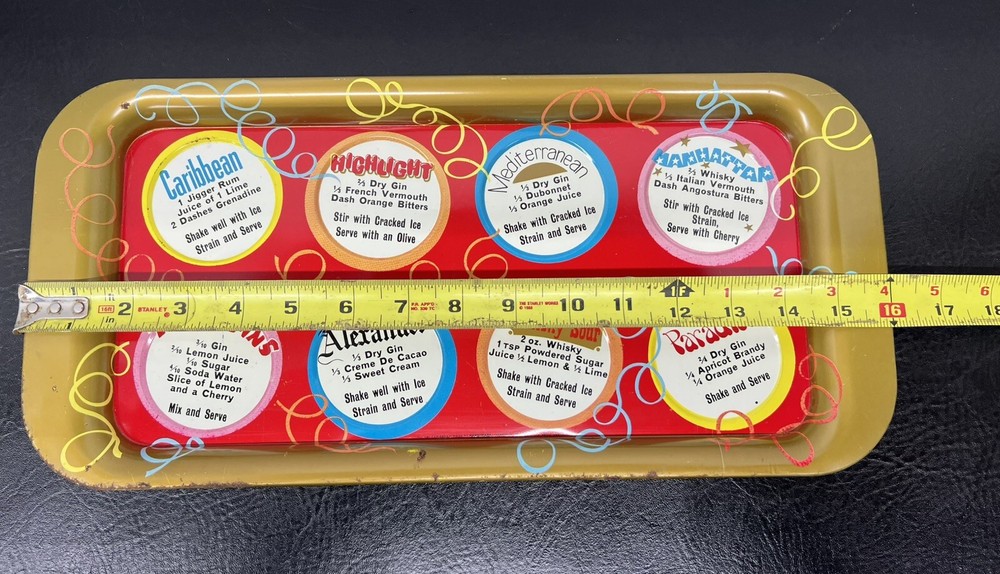 Caribbean
1 Jigger Rum
Juice of 1 Lime
2 Dashes Grenadine
Shake well with Ice
Strain and Serve
HIGHLIGHT
⅔ Dry Gin
⅓ French Vermouth
Dash Orange Bitters
Stir with Cracked Ice
Serve with an Olive
Mediterranean
⅓ Dry Gin
⅓ Dubonnet
⅓ Orange Juice
Shake with Cracked Ice
Strain and Serve
MANHATTAN
⅔ Whisky
⅓ Italian Vermouth
Dash Angostura Bitters
Stir with Cracked Ice
Strain,
Serve with Cherry
1 2 3 4 5 6 1F 1 2 3 4 5 6
16ft STANLEY
THE STANLEY WORKS
in 1 2 3 4 5 6 7 8 9 10 11 13 14 15 16 17 18
Gin
Lemon Juice
Sugar
Soda Water
Slice of Lemon
and a Cherry
Mix and Serve
⅓ Dry Gin
⅓ Creme De Cacao
⅓ Sweet Cream
Shake well with Ice
Strain and Serve
Sour
2 oz. Whisky
1 TSP Powdered Sugar
Juice ½ Lemon & ½ Lime
Shake with Cracked Ice
Strain and Serve
¾ Dry Gin
¼ Apricot Brandy
¼ Orange Juice
Shake and Serve